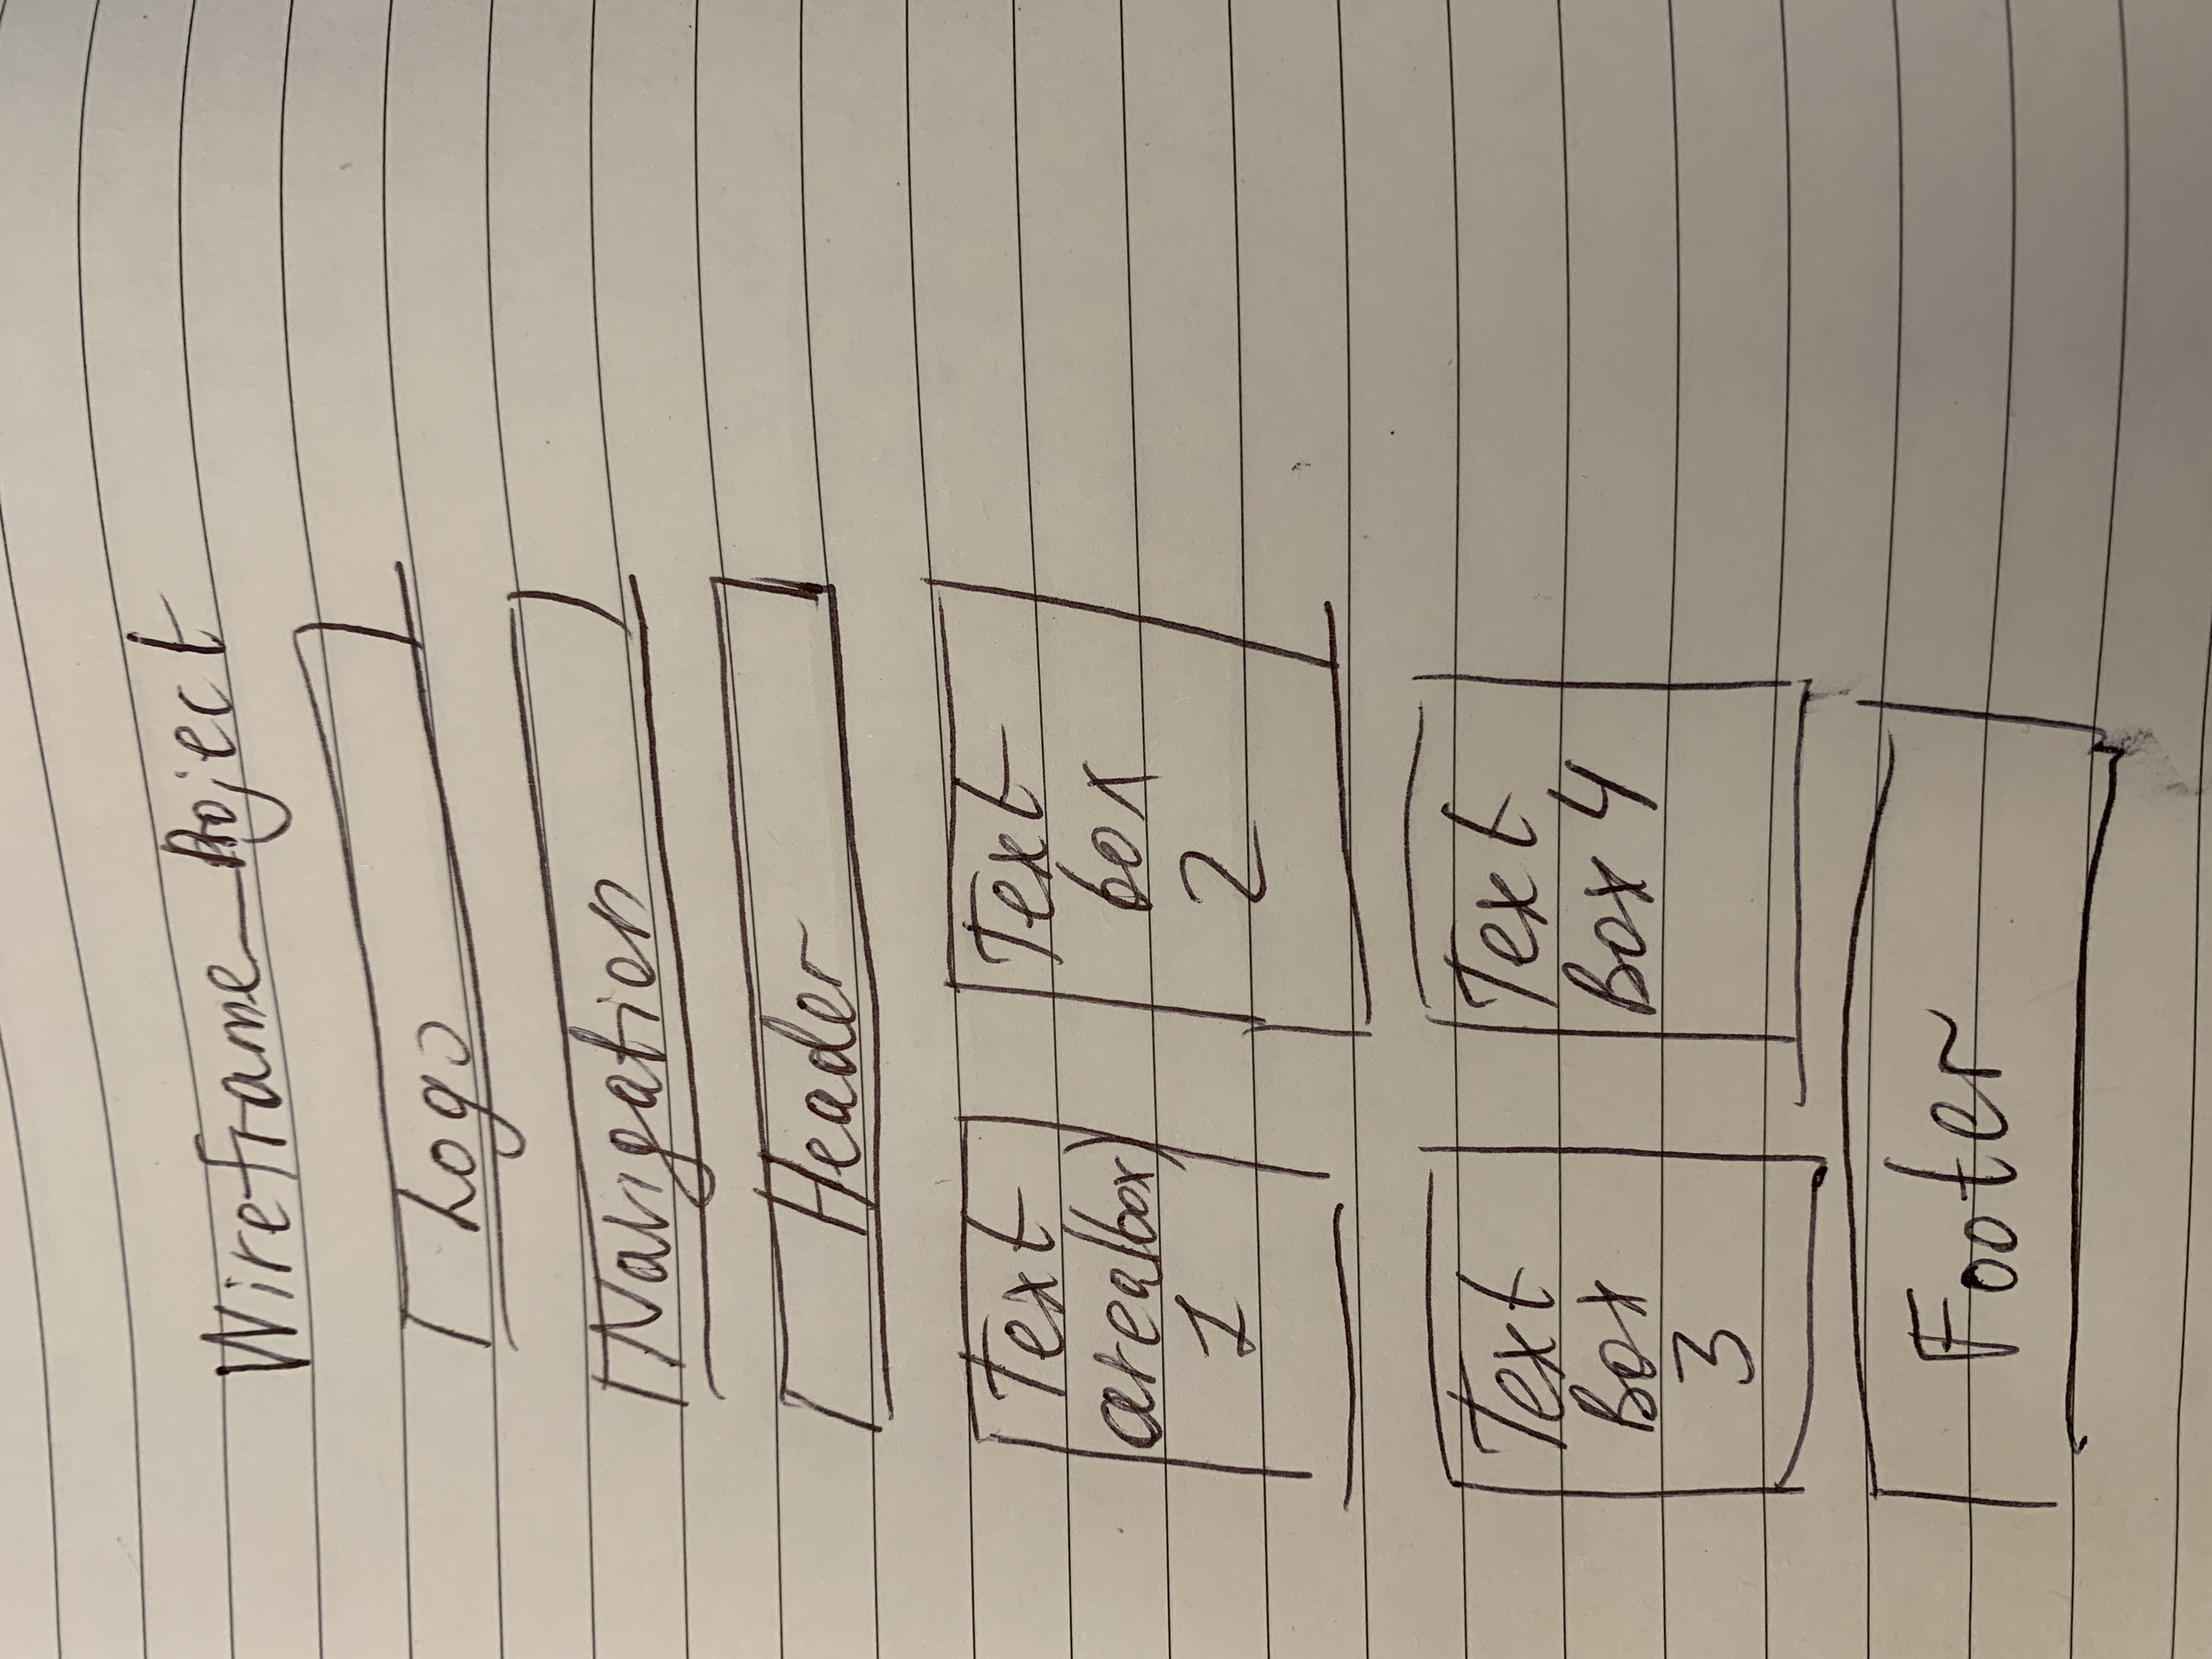 Wireframe_Project
Logo
Navigation
Header
Text
area(box)
1
Text
box
2
Text
Box
3
Text
Box 4
Footer